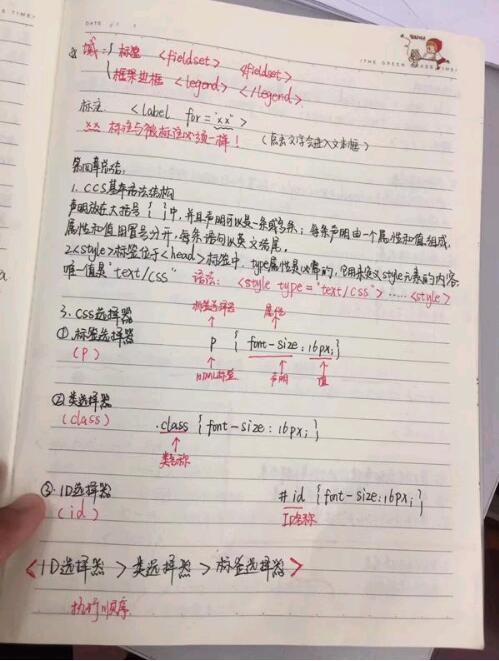 DATE
(THE GREEN GRASS TIME)
域: 标签 <fieldset> <fieldset>
框架边框 <legend> </legend>
标注 <label for="xx">
xx 标注与被标注必须一样! (点击文字会进入文本框)
第四章总结:
1. CCS基本语法结构
声明放在大括号{ }中,并且声明可以是一条或多条;每条声明由一个属性和值组成,
属性和值用冒号分开,每条语句以英文结尾.
2<style>标签位于<head>标签中, type属性是必需的,它用来定义style元素的内容.
唯一值是"text/css" 语法: <style type="text/css">.....<style>
3. css选择器 标签选择器 属性
① 标签选择器 p { font-size:16px;}
(P) HTML标签 声明 值
②类选择器
(class) .class {font-size:16px;}
类名称
③. ID选择器 #id {font-size:16px;}
(id) ID名称
<ID选择器>类选择器>标签选择器>
执行顺序.